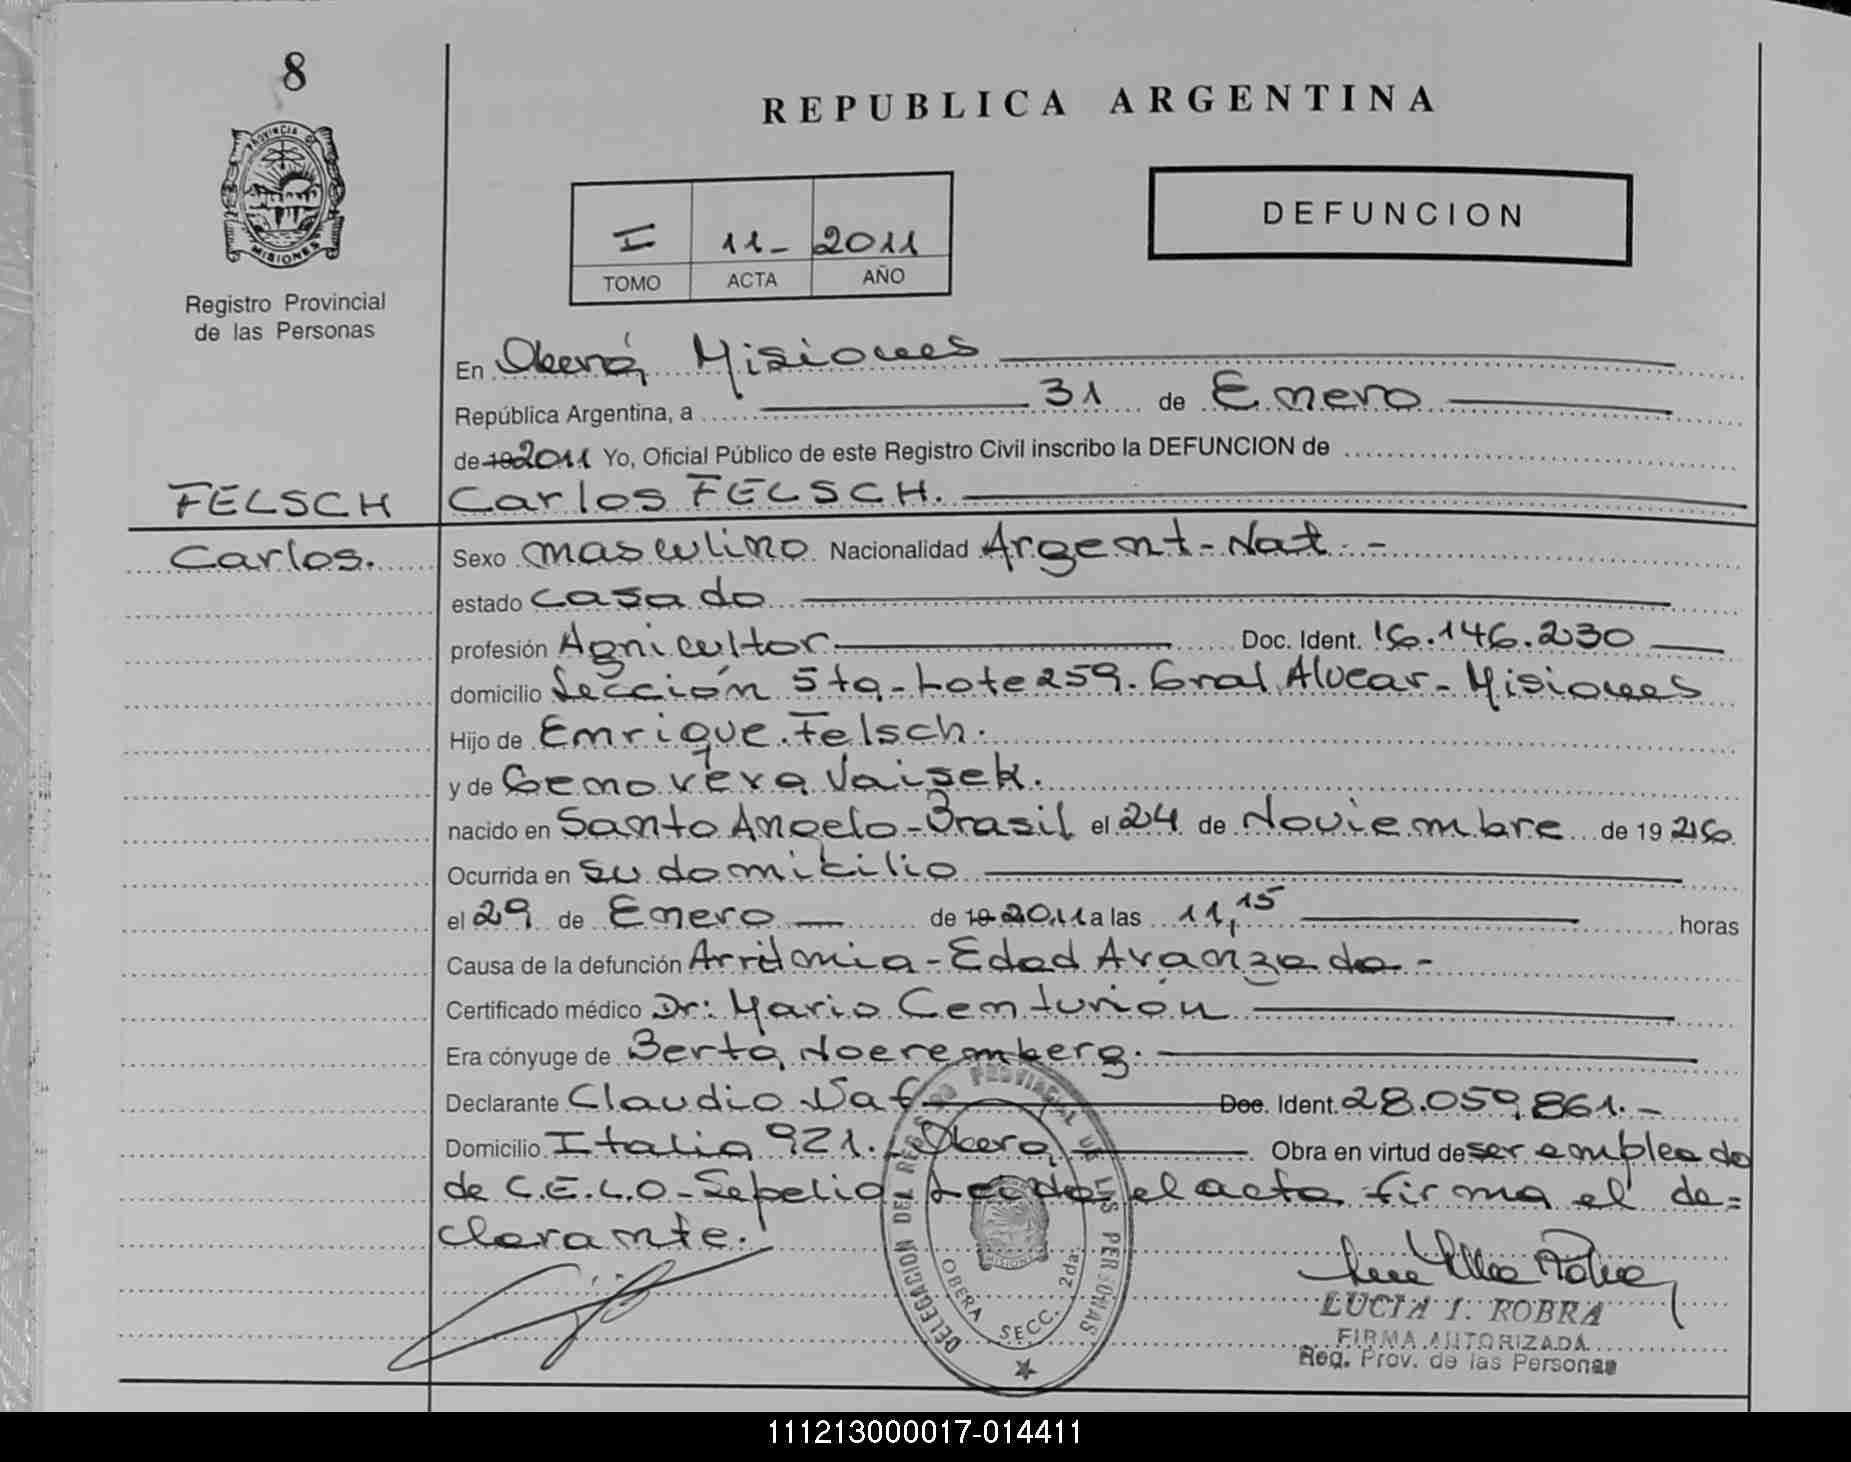 8
REPUBLICA ARGENTINA
PROVINCIA DE
MISIONES
Registro Provincial
de las Personas
I 11- 2011
TOMO ACTA AÑO
DEFUNCION
En Oberá, Misiones
República Argentina, a 31 de Enero
de 19 2011 Yo, Oficial Público de este Registro Civil inscribo la DEFUNCION de
FELSCH Carlos FELSCH.
Carlos. Sexo masculino Nacionalidad Argent-Nat.-
estado casado
profesión Agricultor Doc. Ident. 16.146.230
domicilio Sección 5ta-Lote 259. Gral Alvear-Misiones
Hijo de Enrique Felsch.
y de Genoveva Vaisek.
nacido en Santo Angelo-Brasil el 24 de Noviembre de 1926
Ocurrida en su domicilio
el 29 de Enero de 19 2011 a las 11,15 horas
Causa de la defunción Arritmia-Edad Avanzada-
Certificado médico Dr: Mario Centurión
Era cónyuge de Berta Noeremberg.
Declarante Claudio Doc. Ident. 28.059.861.-
Domicilio Italia 921. Oberá, Obra en virtud de ser empleado
de C.E.L.O-Sepelio-Leída el acta firma el de=
clarante.
DELEGACION DEL REGISTRO PROVINCIAL DE LAS PERSONAS
OBERA SECC. 2da.
MISIONES
LUCIA I. ROBRA
FIRMA AUTORIZADA
Reg. Prov. de las Personas
111213000017-014411